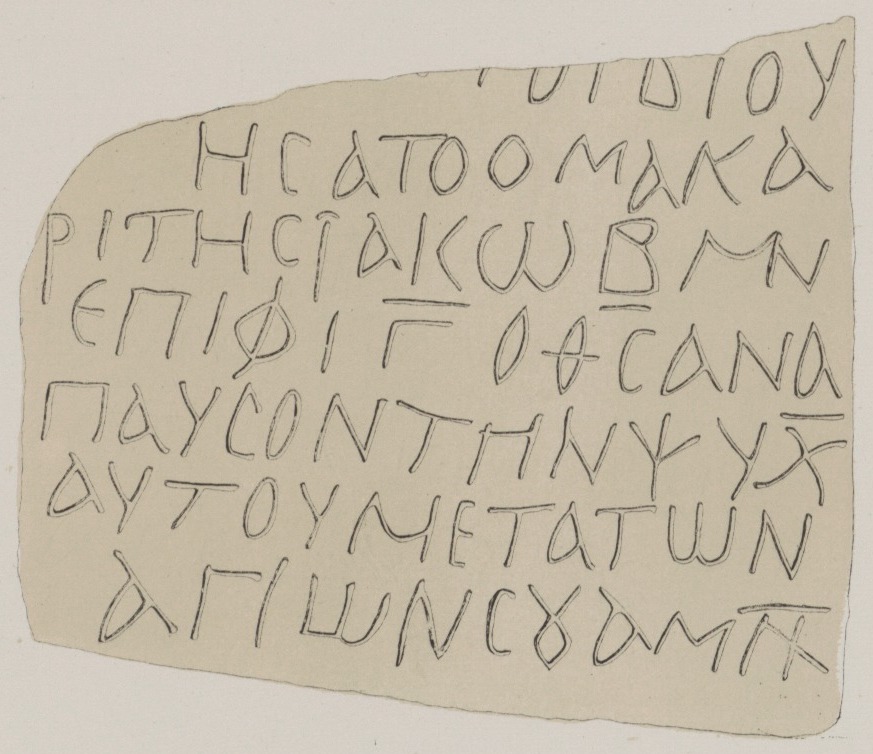 ΙΔΙΟΥ
ΗCΑΤΟΟΜΑΚΑ
ΡΙΤΗCΙΑΚΩΒΜΝ
ΕΠΙΦΙΓ̅ ΟΘCΑΝΑ
ΠΑΥCΟΝΤΗΝΨΥΧ̅
ΑΥΤΟΥΜΕΤΑΤΩΝ
ΑΓΙΩΝCȢΑΜΝ̅